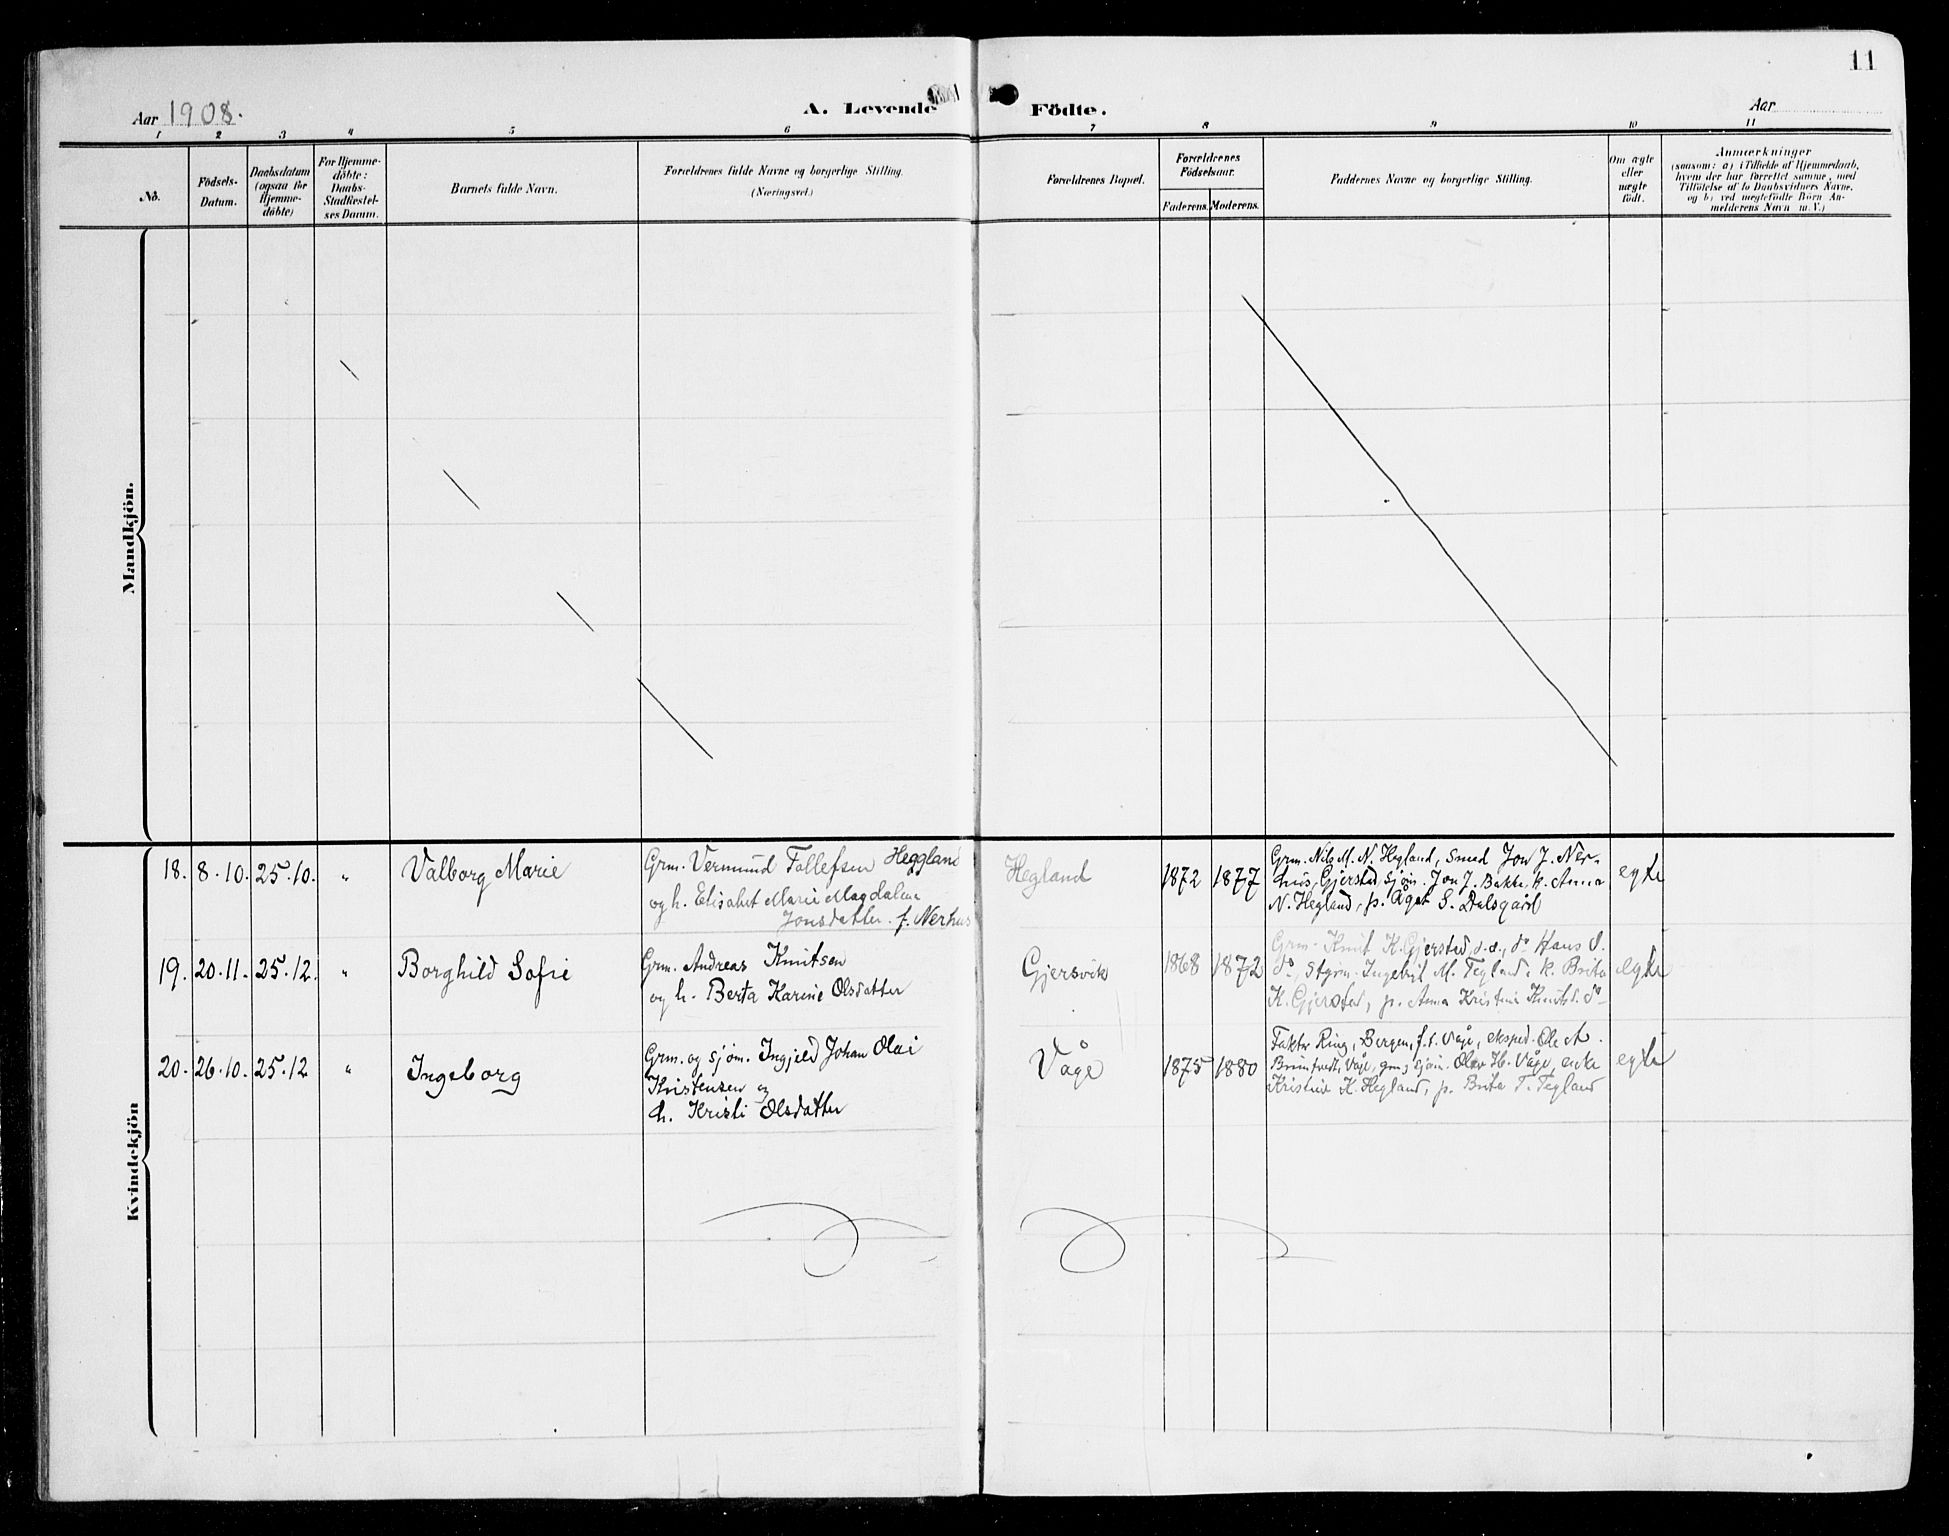 11
Aar 1908.
A. Levende Födte.
Aar
1 2 3 4 5 6 7 8 9 10 11
No.
Födsels-
Datum.
Daabsdatum
(ogsaa for
Hjemme-
döbte)
For Hjemme-
döbte:
Daabs-
Stadfæstel-
ses Datum.
Barnets fulde Navn.
Forældrenes fulde Navne og borgerlige Stilling.
(Næringsvei.)
Forældrenes Bopæl.
Forældrenes
Födselsaar.
Faderens. Moderens.
Faddernes Navne og borgerlige Stilling.
Om ægte
eller
uægte
födt.
Anmærkninger
(saasom: a) i Tilfælde af Hjemmedaab,
hvem der har forrettet samme, med
Tilföielse af to Daabsvidners Navne,
og b) ved uægtefödte Börn An-
melderens Navn m. V.)
Mandkjön.
Kvindekjön
18. 8.10. 25.10. " Valborg Marie
Grm. Vermund Tollefsen Heggland
og h. Elisabet Marie Magdalene
Jonsdatter. f. Nerhus
Hegland 1872 1877
Grm. Nils M. N. Hegland, Smed Jon J. Ner-
hus, Gjerstad, sjöm. Jon J. Bakke, k. Anna
N. Hegland, p. Ågat S. Dalsgard
egte
19. 20.11. 25.12. " Borghild Sofie
Grm. Andreas Knutsen
og h. Berta Karine Olsdatter
Gjersvik 1868 1872
Grm. Knut K. Gjerstad, s. s., do Hans S.
do, Styrm. Ingebrigt M. Tegland, k. Brita
K. Gjerstad, p. Anna Kristine Knutsd. do
egte
20. 26.10. 25.12 " Ingeborg
Grm. og sjöm. Ingjeld Johan Olai
Kristensen og
h. Kristi Olsdatter
Våge 1875 1880
Faktor Ring, Bergen, f. t. Våge, eksped. Ole A.
Våge, grm, sjöm. Olav H. Våge, enke
Kristine K. Hegland, p. Brita T. Tegland
egte